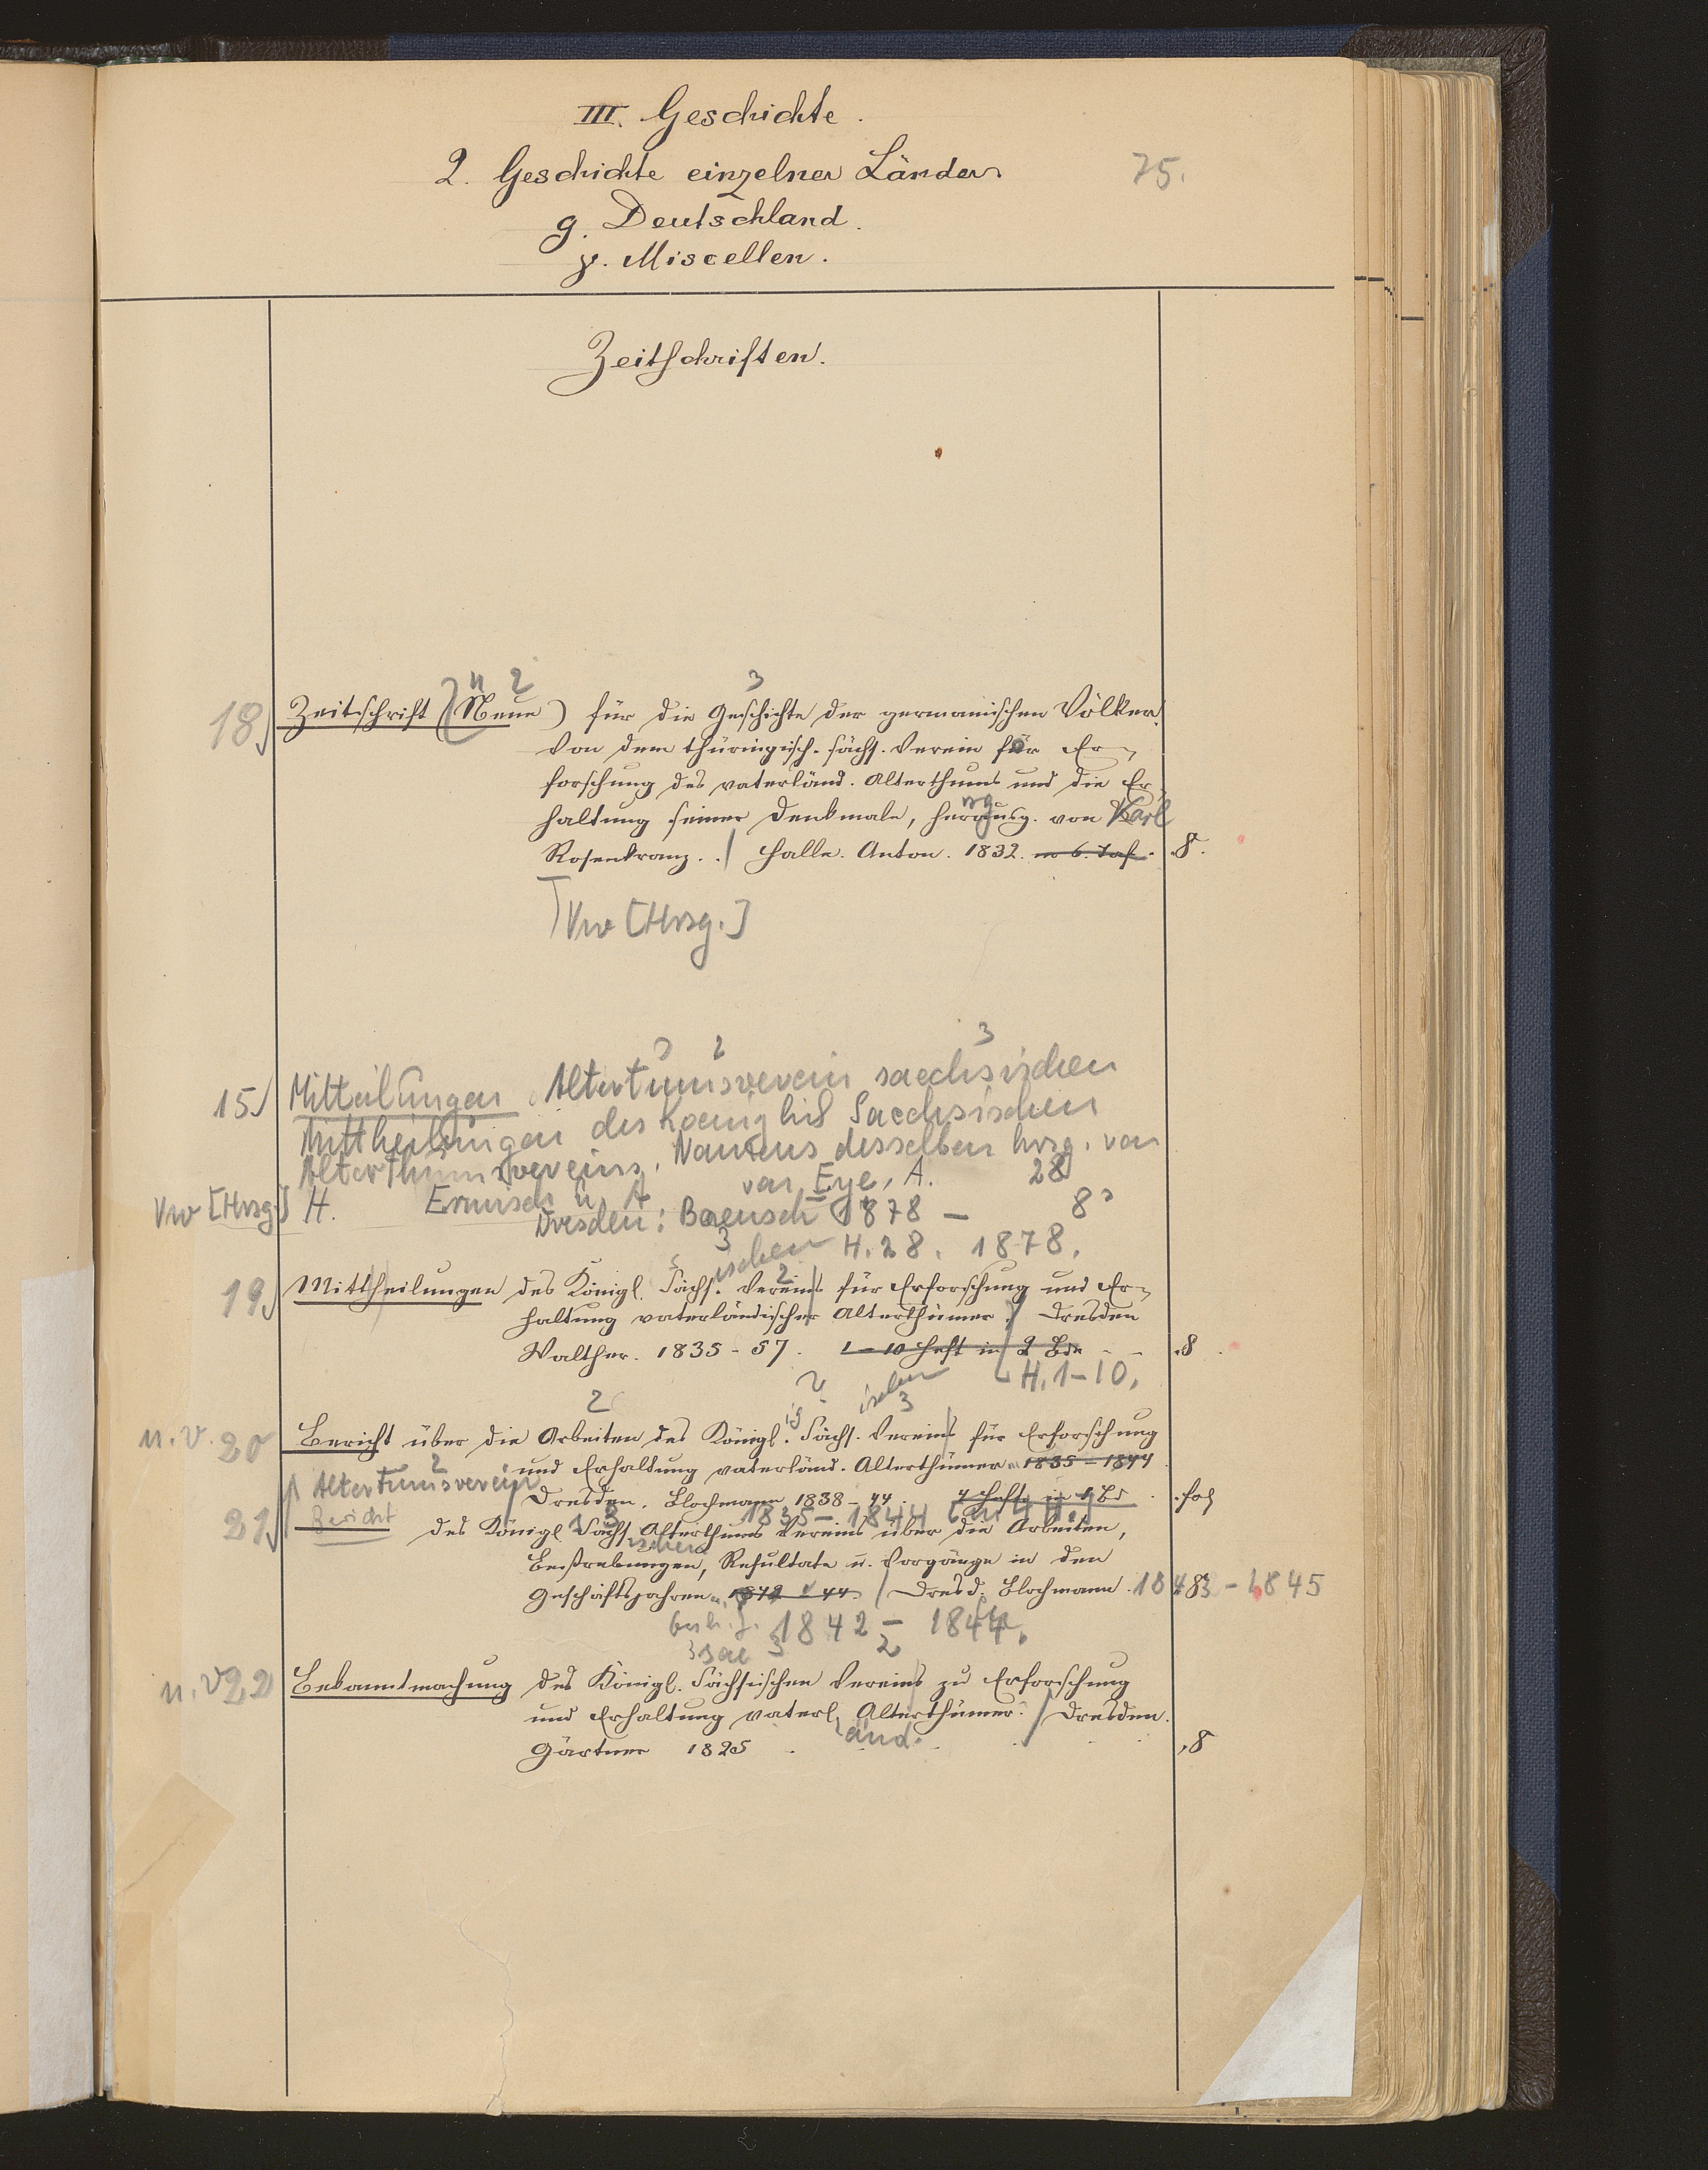 III. Geschichte.
2. Geschichte einzelner Länder.
75.
g. Deutschland.
γ. Miscellen.
Zeitschriften.
n 2 3
18) Zeitschrift (Neue) für die Geschichte der germanischen Völker.
Von dem thüringisch-sächs. Verein für Er-
forschung des vaterländ. Alterthums und die Er-
haltung seiner Denkmale, herausg. von Karl
Rosenkranz. . / Halle. Anton. 1832. m 6. Taf. 8.
Vw [Hrsg.]
2 3
15) Mitteilungen Altertumsverein saechsischen
Mittheilungen des Koeniglich Saechsischen
Alterthumsvereins. Namens desselben hrsg. von
28
Vw [Hrsg.] H. Ermisch u. A. von Eye, A.
Dresden: Baensch 1878 – 8°
3 ischen H. 28. 1878.
2
19) Mittheilungen des Königl. Sächs. Vereins für Erforschung und Er-
haltung vaterländischer Alterthümer. / Dresden
Walther. 1835-57. 1-10 Heft in 2 Bde 8.
H. 1-10.
2 2 ischen 3
n. v. 20 Bericht über die Arbeiten des Königl. Sächs. Vereins für Erforschung
und Erhaltung vaterländ. Alterthümer 1835-1844
Altertumsverein 2
Dresden. Blochmann 1838-44. 4 Hefte in 1 Bd. fol
1835-1844 4 H.
21) Bericht des Königl. Sächs. Alterthums Vereins über die Arbeiten,
ischen
Bestrebungen, Resultate u. Vorgänge in den
Geschäftsjahren 1842 44. / Dresd. Blochmann. 1843-1845 8
1842-1844.
sae 3 2
n. v. 22 Bekanntmachung des Königl. Sächsischen Vereins zu Erforschung
und Erhaltung vaterl. Alterthümer. / Dresden.
änd.
Gärtner 1825 8